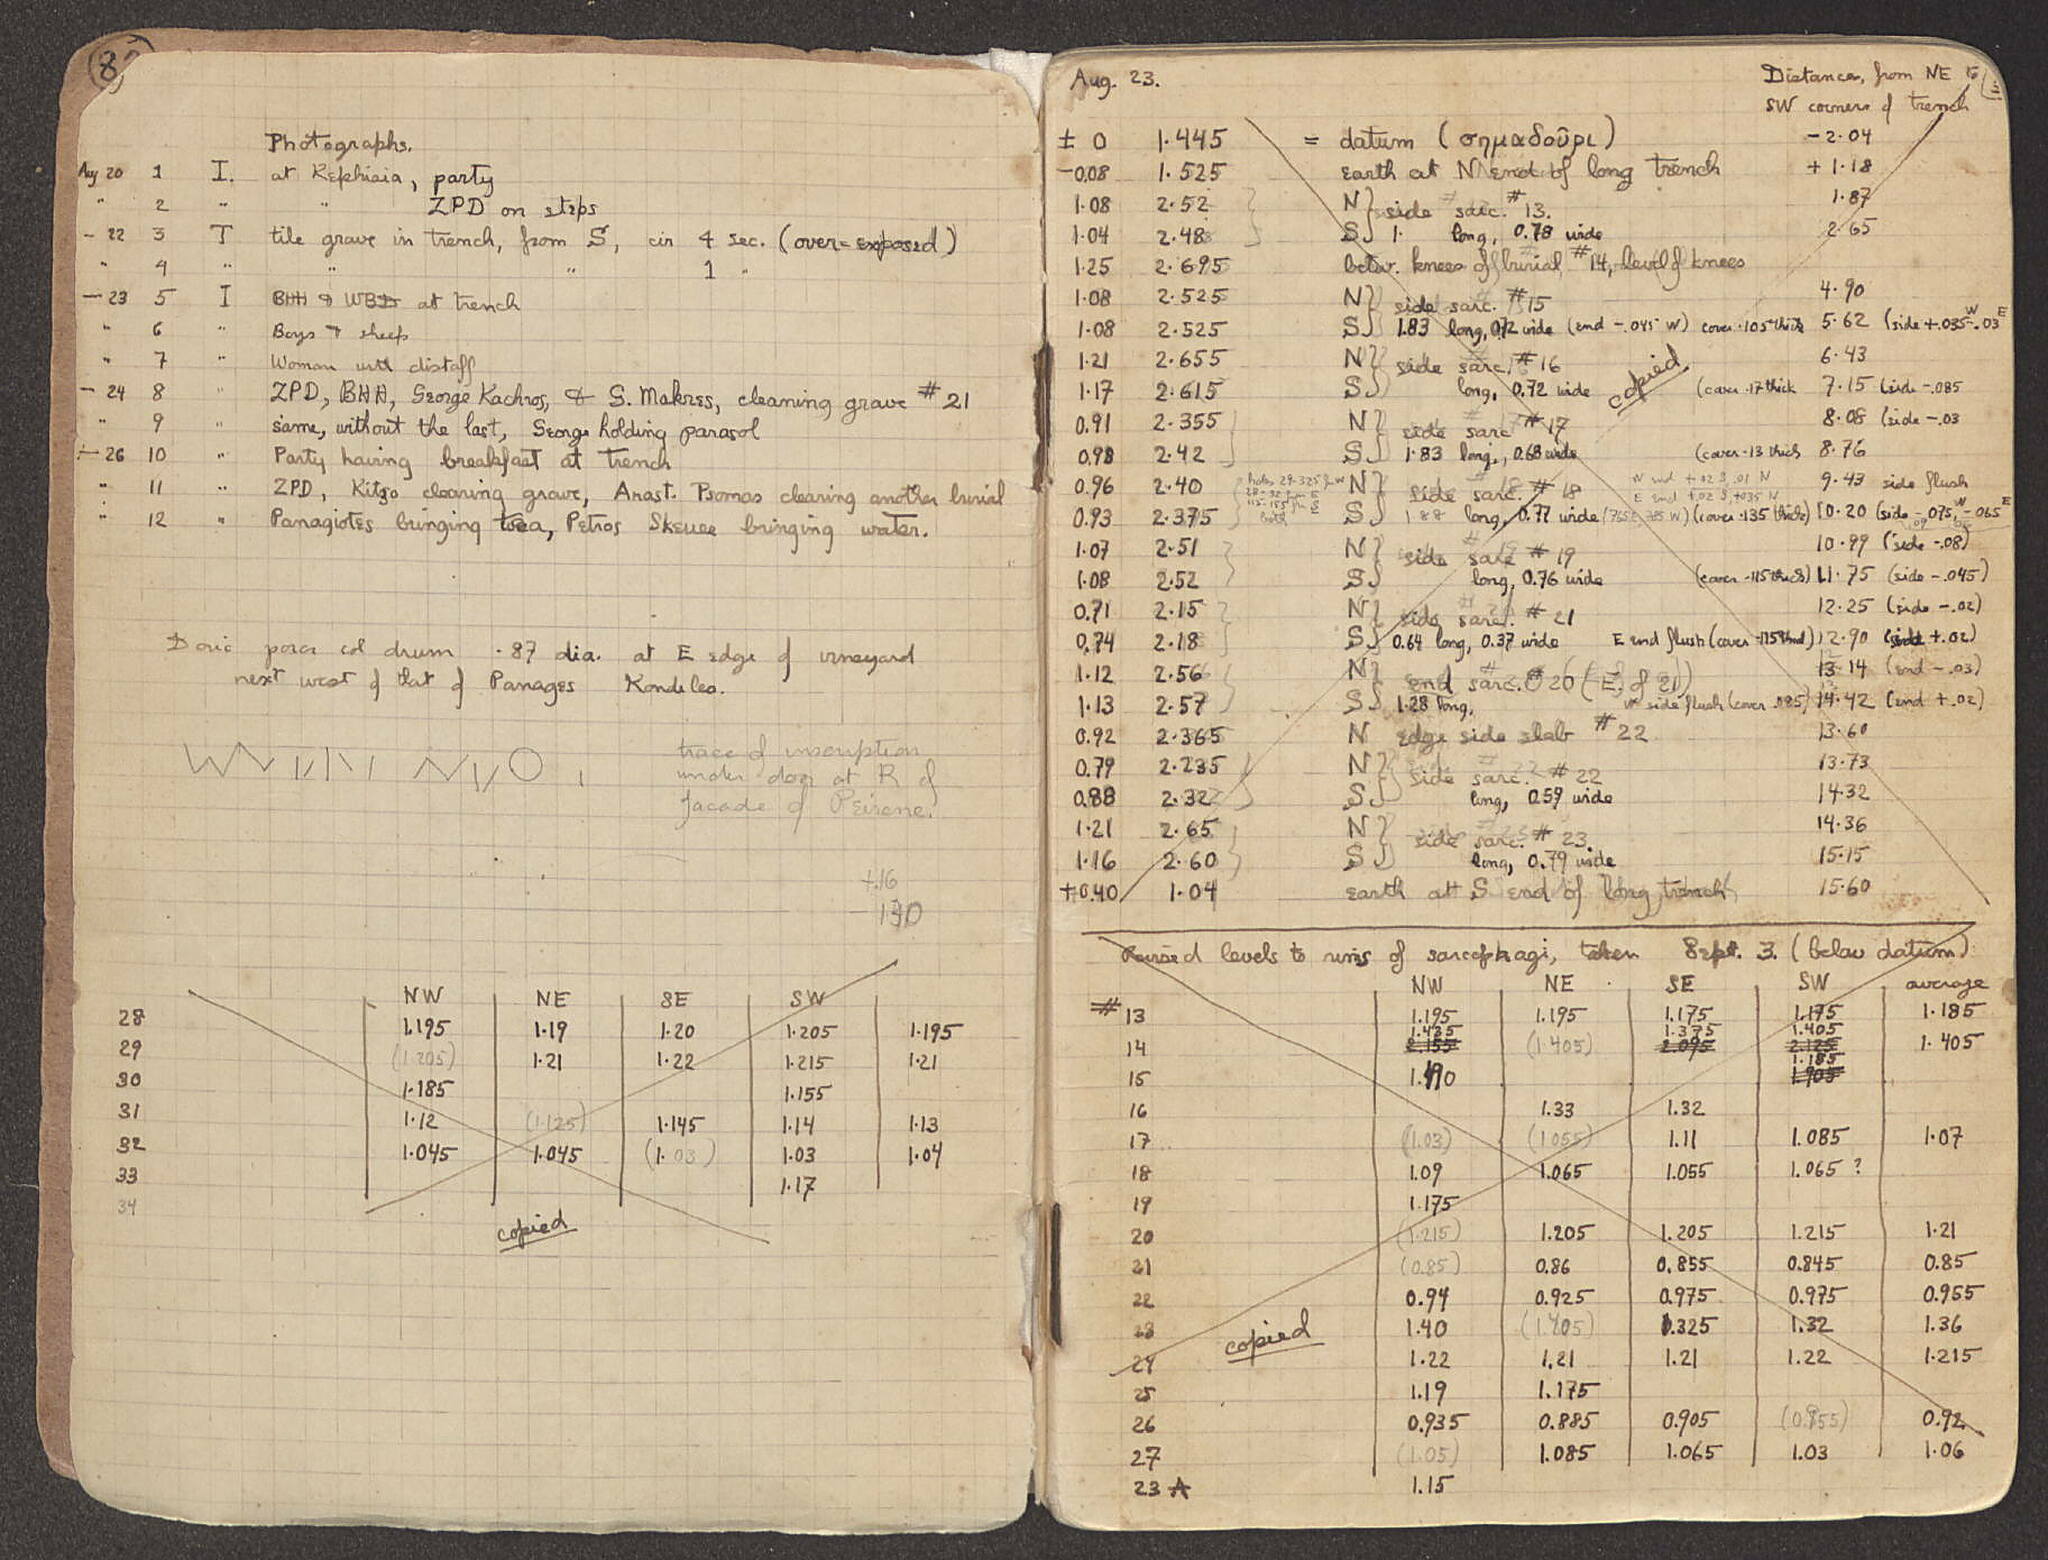 Photographs.
Aug 20 1 I. at Kephisia, party
" 2 " " ZPD on steps
- 22 3 T tile grave in trench, from S, cir 4 sec. (over-exposed)
" 4 " " " 1 "
- 23 5 I BHH & WBD at trench
" 6 " Boys & sheep
" 7 " Woman with distaff
- 24 8 " ZPD, BHH, George Kachros, & S. Makres, cleaning grave # 21
" 9 " same, without the last, George holding parasol
- 26 10 " Party having breakfast at trench
" 11 " ZPD, Kitso clearing grave, Anast. Psomas clearing another burial
" 12 " Panagiotes bringing tea, Petros bringing water.
Doric poros col drum .87 dia. at E edge of vineyard
next west of that of Panages Kondeles.
trace of inscription
under door at R of
facade of Peirene.
+.16
-130
NW NE SE SW
28 1.195 1.19 1.20 1.205 1.195
29 (1.205) 1.21 1.22 1.215 1.21
30 1.185 1.155
31 1.12 (1.125) 1.145 1.14 1.13
32 1.045 1.045 (1.03) 1.03 1.04
33 1.17
34
copied
Aug. 23. Distances, from NE to
SW corners of trench
± 0 1.445 = datum (σημαδοῦρι) -2.04
-0.08 1.525 earth at N end of long trench +1.18
1.08 2.52 N } side sarc. # 13. 1.87
1.04 2.48 S } 1. long, 0.78 wide 2.65
1.25 2.695 betw. knees of burial #14, level of knees
1.08 2.525 N } side sarc. # 15 4.90
1.08 2.525 S } 1.83 long, 0.72 wide (end -.045 W) cover .105 thick 5.62 (side +.035 W -.03 E
1.21 2.655 N } side sarc. # 16 6.43
copied
1.17 2.615 S } long, 0.72 wide (cover .17 thick 7.15 (side -.085
0.91 2.355 N } side sarc # 17 8.08 (side -.03
0.98 2.42 S } 1.83 long, 0.68 wide (cover .13 thick 8.76
0.96 2.40 N } side sarc. # 18 9.43 side flush
0.93 2.375 S } 1.88 long, 0.77 wide (cover .135 thick) 10.20 (side -.075 W -.065 E
1.07 2.51 N } side sarc # 19 10.99 (side -.08)
1.08 2.52 S } long, 0.76 wide (cover .115 thick) 11.75 (side -.045)
0.71 2.15 N } side sarc. # 21 12.25 (side -.02)
0.74 2.18 S } 0.64 long, 0.37 wide E end flush 12.90 (side +.02)
1.12 2.56 N } end sarc. # 20 (E. of 21) 13.14 (end -.03)
1.13 2.57 S } 1.28 long, W side flush (cover .085) 14.42 (end +.02)
0.92 2.365 N edge side slab # 22 13.60
0.79 2.235 N } side sarc. # 22 13.73
0.88 2.32 S } long, 0.59 wide 14.32
1.21 2.65 N } side sarc. # 23. 14.36
1.16 2.60 S } long, 0.79 wide 15.15
+0.40 1.04 earth at S end of long trench 15.60
Revised levels to rims of sarcophagi, taken Sept. 3. (below datum)
NW NE SE SW average
# 13 1.195 1.195 1.175 1.175 1.185
1.435 1.375 1.405
14 2.155 (1.405) 2.095 2.125 1.405
1.185
15 1.190 1.905
16 1.33 1.32
17 (1.03) (1.055) 1.11 1.085 1.07
18 1.09 1.065 1.055 1.065 ?
19 1.175
20 (1.215) 1.205 1.205 1.215 1.21
21 (0.85) 0.86 0.855 0.845 0.85
22 0.94 0.925 0.975 0.975 0.955
23 1.40 (1.405) 1.325 1.32 1.36
copied
24 1.22 1.21 1.21 1.22 1.215
25 1.19 1.175
26 0.935 0.885 0.905 (0.955) 0.92
27 (1.05) 1.085 1.065 1.03 1.06
23 A 1.15